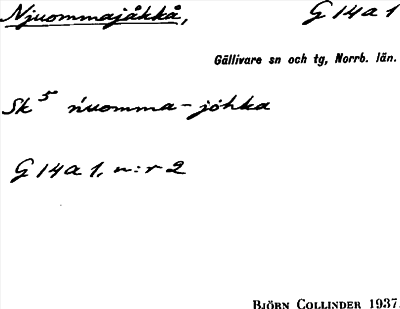 Njuommajåkkå, G 14a 1
Gällivare sn och tg, Norrb. län.
Sk 5 ńuomma-jòhka
G 14a 1, n:r 2
BJÖRN COLLINDER 1937.